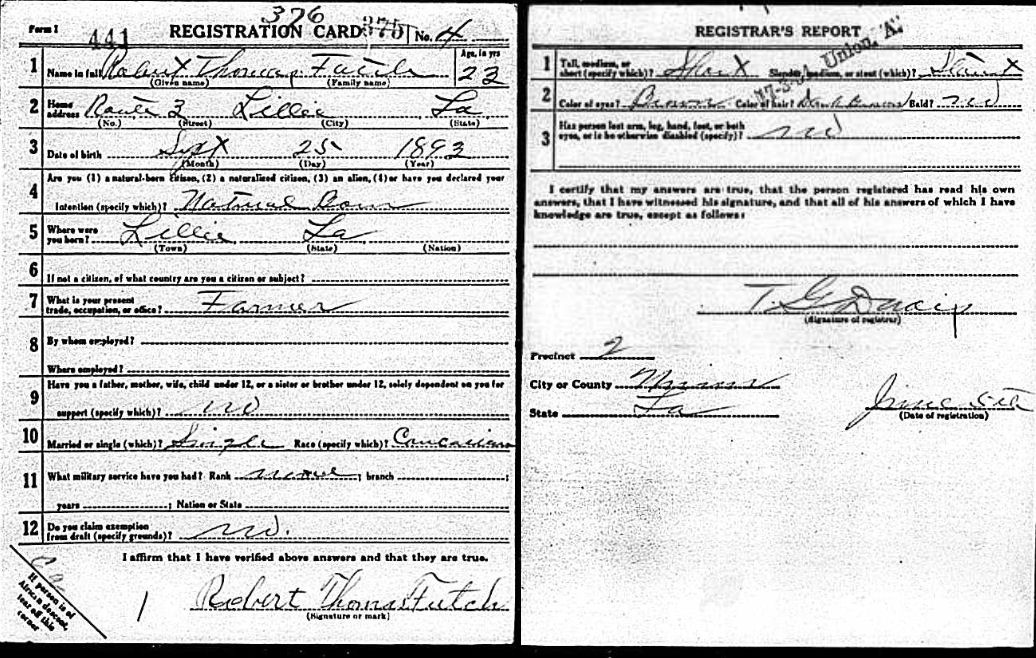 Form 1 441 REGISTRATION CARD 376 375 No. 4
1 Name in full Robert Thomas Futch Age, in yrs 23
(Given name) (Family name)
2 Home address Route 3 Lillie La
(No.) (Street) (City) (State)
3 Date of birth Sept 25 1893
(Month) (Day) (Year)
4 Are you (1) a natural-born citizen, (2) a naturalized citizen, (3) an alien, (4) or have you declared your
intention (specify which)? Natural Born
5 Where were you born? Lillie La
(Town) (State) (Nation)
6 If not a citizen, of what country are you a citizen or subject?
7 What is your present trade, occupation, or office? Farmer
8 By whom employed?
Where employed?
9 Have you a father, mother, wife, child under 12, or a sister or brother under 12, solely dependent on you for
support (specify which)? no
10 Married or single (which)? Single Race (specify which)? Caucasian
11 What military service have you had? Rank none ; branch ;
years ; Nation or State
12 Do you claim exemption from draft (specify grounds)? no.
I affirm that I have verified above answers and that they are true.
1 Robert Thomas Futch
(Signature or mark)
If person is of
African descent,
tear off this
corner
REGISTRAR'S REPORT
Union, "A"
1 Tall, medium, or short (specify which)? Short Slender, medium, or stout (which)? Stout
2 Color of eyes? Brown Color of hair? Dark Brown Bald? no
3 Has person lost arm, leg, hand, foot, or both
eyes, or is he otherwise disabled (specify)? no
I certify that my answers are true, that the person registered has read his own
answers, that I have witnessed his signature, and that all of his answers of which I have
knowledge are true, except as follows:
(Signature of registrar)
Precinct 2
City or County Union
State La
June 5th
(Date of registration)